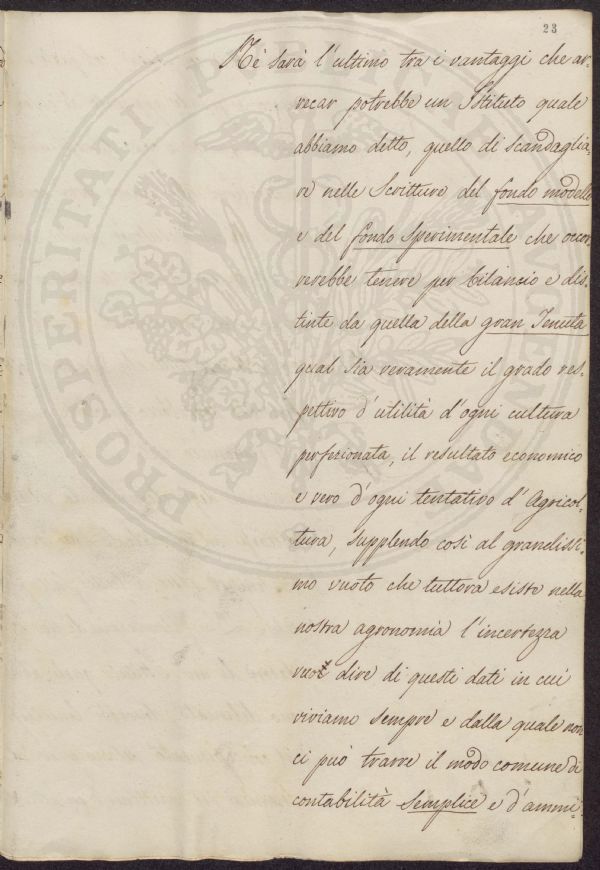 23
Nè sarà l'ultimo tra i vantaggi che ar-
recar potrebbe un Istituto quale
abbiamo detto, quello di scandaglia-
re nelle Scritture del fondo modello
e del fondo Sperimentale che occor
rerebbe tenere per bilancio e dis-
tinte da quella della gran Tenuta
qual sia veramente il grado res-
pettivo d'utilità d'ogni cultura
perfezionata, il resultato economico
e vero d'ogni tentativo d'Agricol-
tura, supplendo così al grandissi-
mo vuoto che tuttora esiste nella
nostra agronomia l'incertezza
vuol dire di questi dati in cui
viviamo sempre e dalla quale non
ci può trarre il modo comune di
contabilità semplice e d'ammi-
PROSPERITATI PUBLICAE